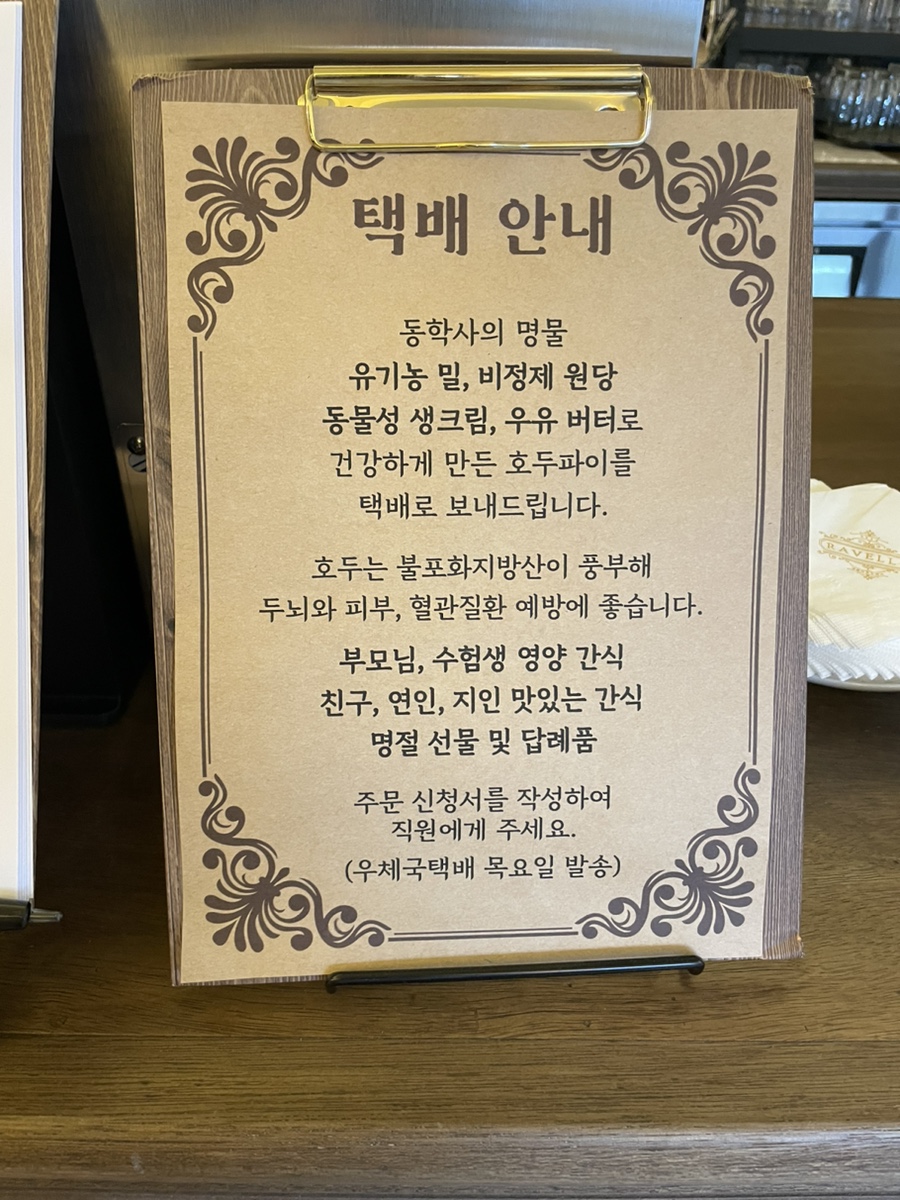 택배 안내
동학사의 명물
유기농 밀, 비정제 원당
동물성 생크림, 우유 버터로
건강하게 만든 호두파이를
택배로 보내드립니다.
호두는 불포화지방산이 풍부해
두뇌와 피부, 혈관질환 예방에 좋습니다.
부모님, 수험생 영양 간식
친구, 연인, 지인 맛있는 간식
명절 선물 및 답례품
주문 신청서를 작성하여
직원에게 주세요.
(우체국택배 목요일 발송)
RAVELL